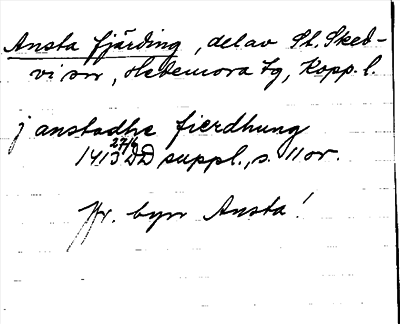 Ansta fjärding, del av St. Sked-
vi sn, Hedemora tg, Kopp. l.
j anstadhe fierdhung
27/6
1413 DD suppl., s. 11 or.
Jfr. byn Ansta!